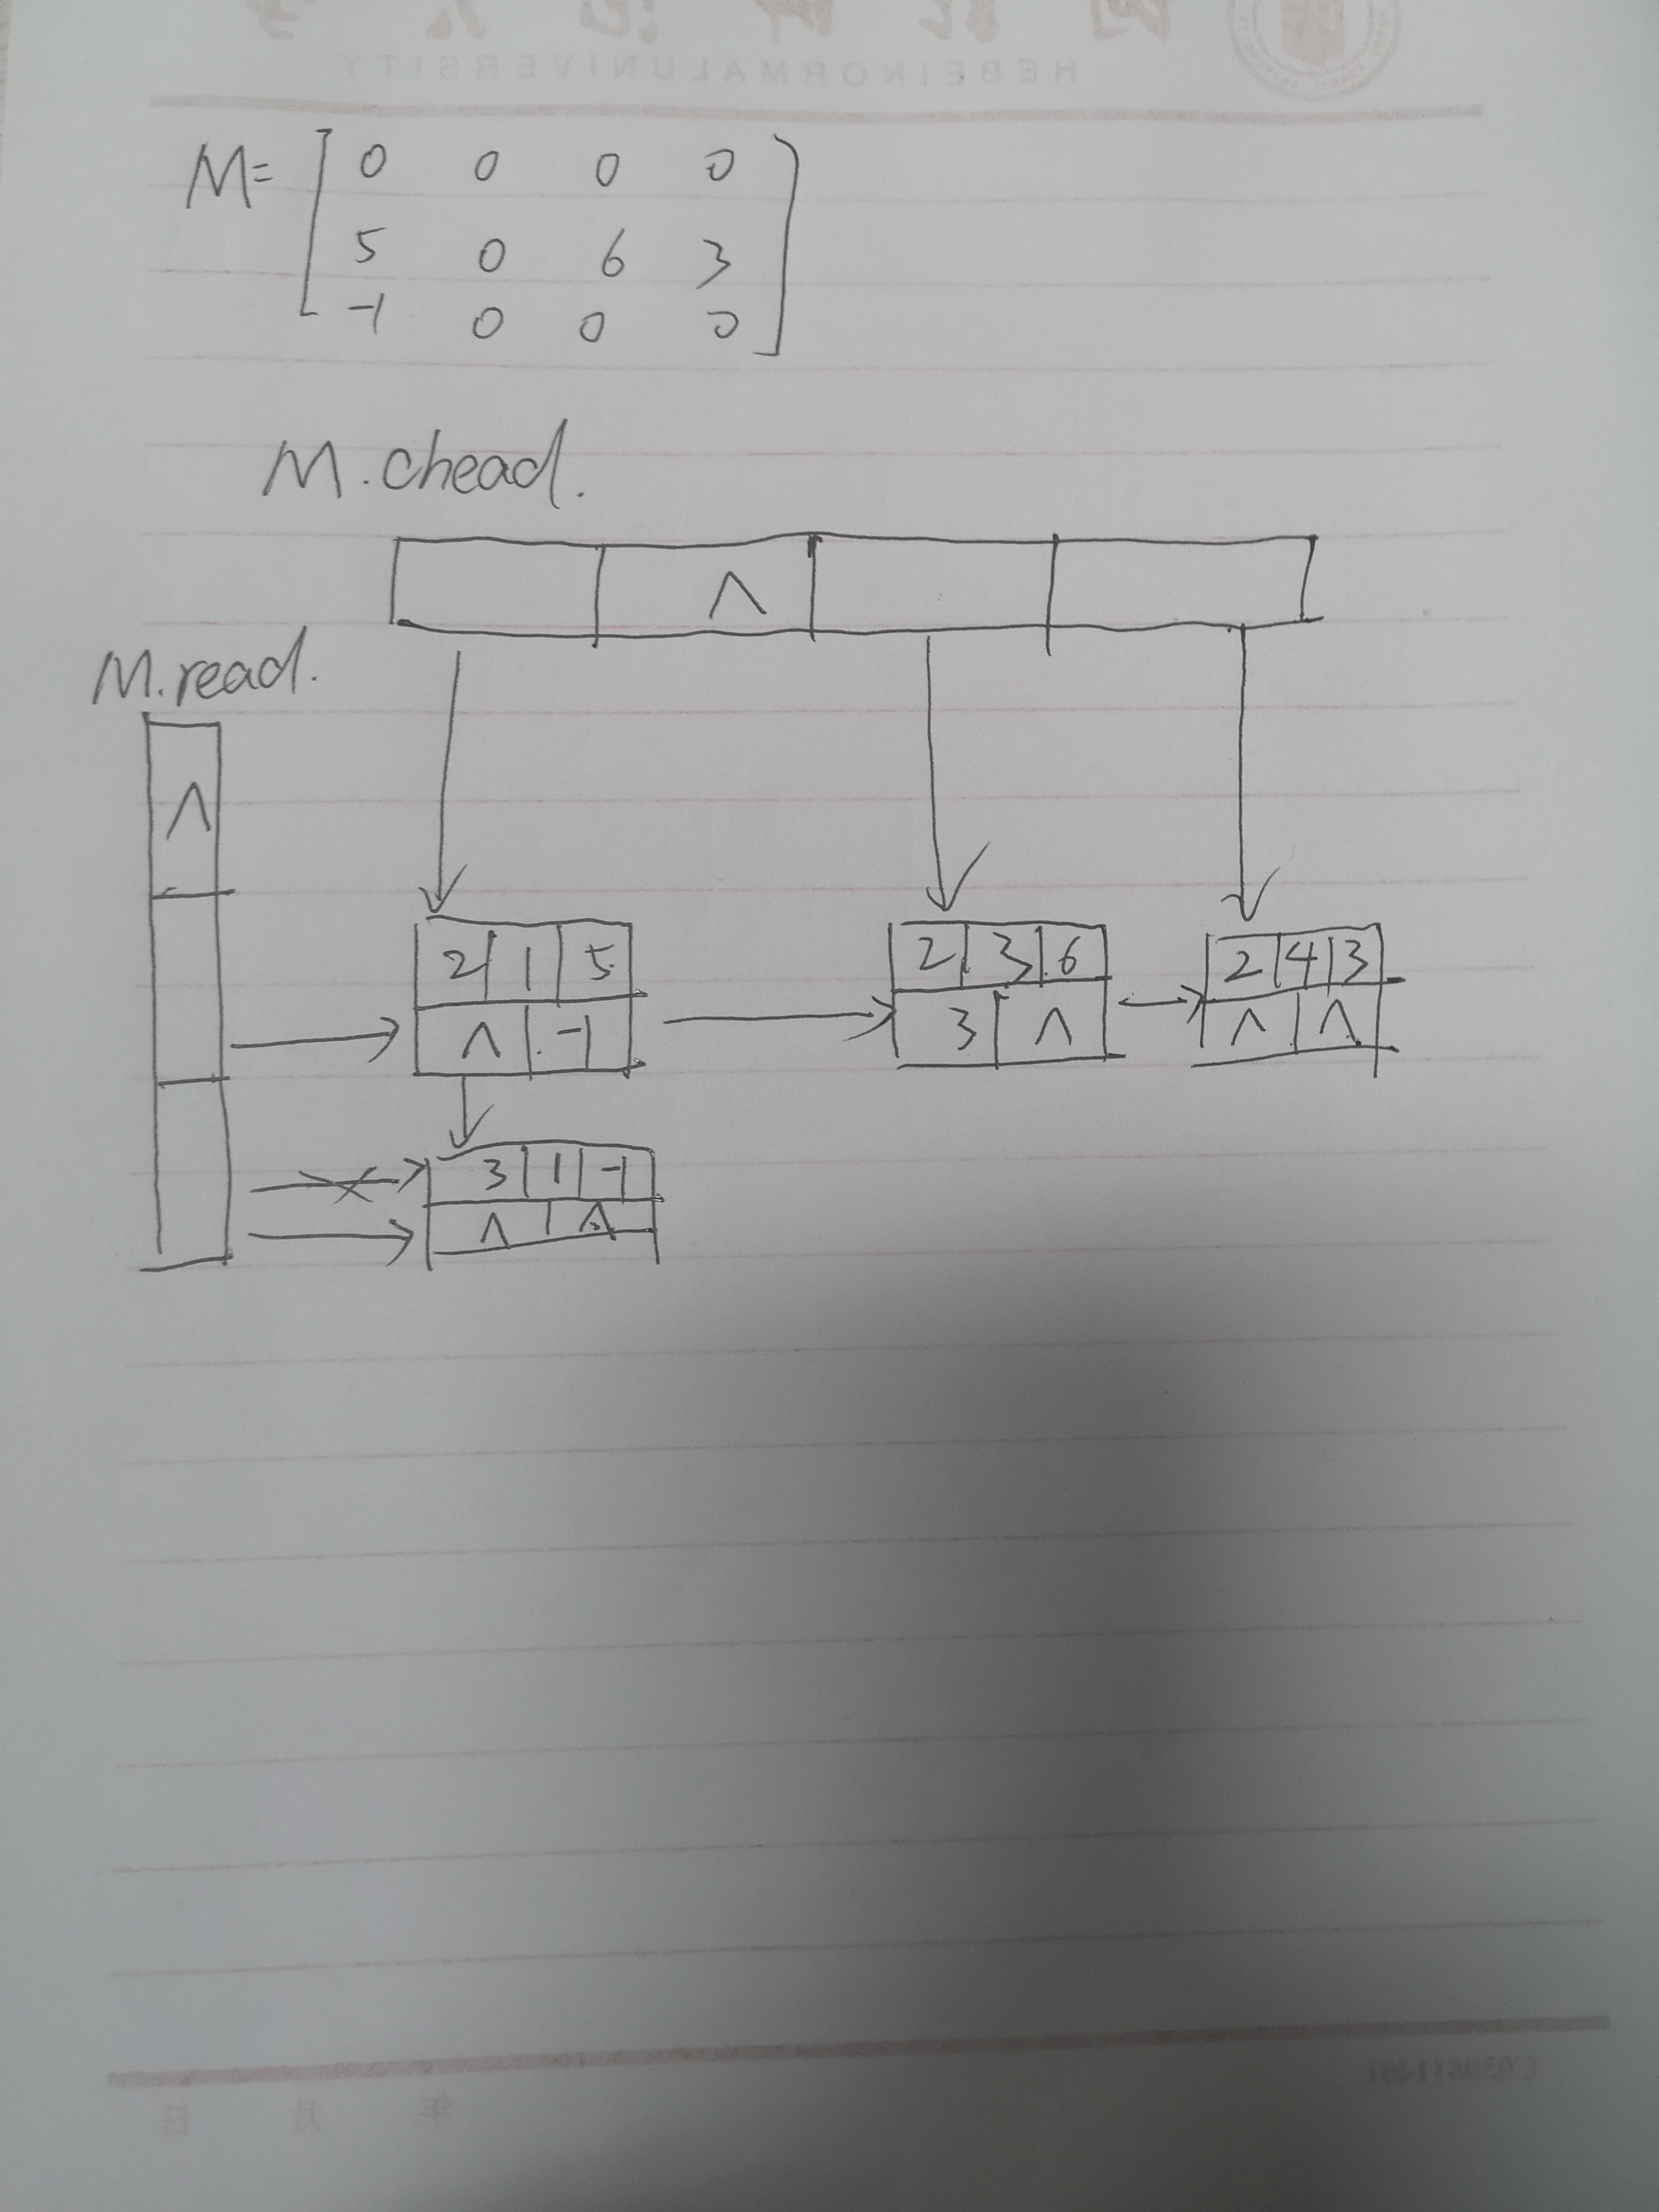 HEBEINORMALUNIVERSITY
M= [ 0 0 0 0
5 0 6 3
-1 0 0 0 ]
M.chead.
∧
M.read.
∧
2 1 5
∧ -1
2 3 6
3 ∧
2 4 3
∧ ∧
3 1 -1
∧ ∧
年 月 日